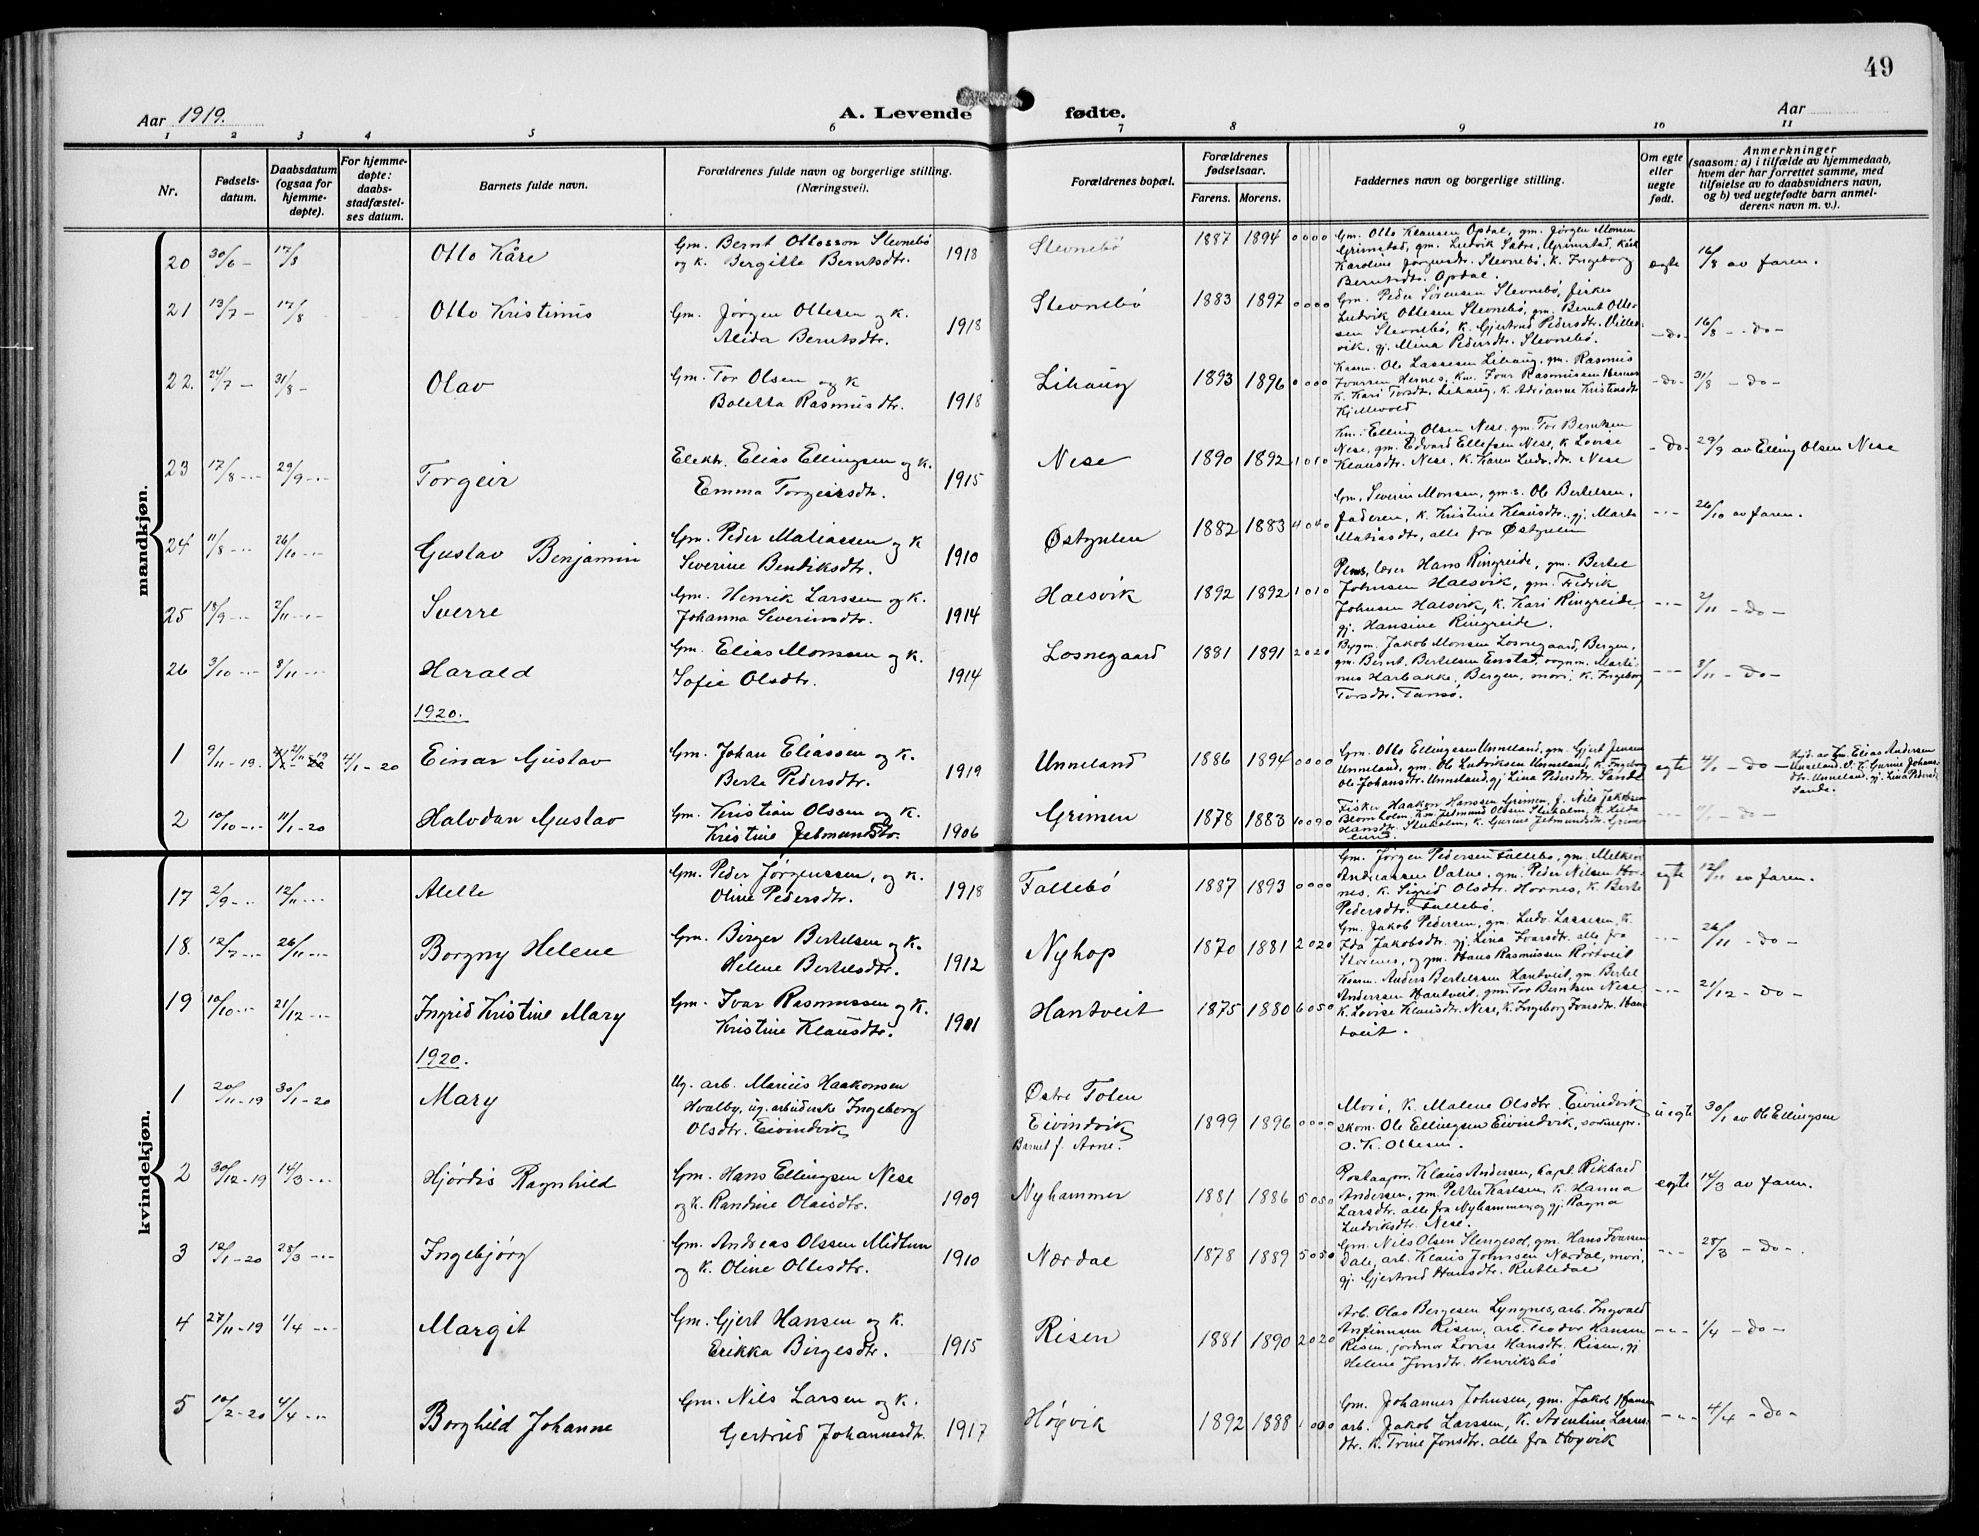 49
Aar 1919.
A. Levende fødte.
Aar
1 2 3 4 5 6 7 8 9 10 11
Nr.
Fødsels-
datum.
Daabsdatum
(ogsaa for
hjemme-
døpte).
For hjemme-
døpte:
daabs-
stadfæstel-
ses datum.
Barnets fulde navn.
Forældrenes fulde navn og borgerlige stilling.
(Næringsvei).
Forældrenes bopæl.
Forældrenes
fødselsaar.
Farens. Morens.
Faddernes navn og borgerlige stilling.
Om egte
eller
uegte
født.
Anmerkninger
(saasom: a) i tilfælde av hjemmedaab,
hvem der har forrettet samme, med
tilføielse av to daabsvidners navn,
og b) ved uegtefødte barn anmel-
derens navn m. v.).
mandkjøn.
20 30/6 - 17/8 Otto Kåre Gm. Bernt Ottosson Stevnebø
og k. Bergitte Berntsdtr. 1918 Stevnebø 1887 1894 0 0 0 0
Gm. Otto Klausen Opdal, gm. Jørgen Monsen
Grimstad, gm. Ludvik Sætre, Grimstad,
Karoline Jørgensdtr. Stevnebø, k. Ingeborg
Berntsdtr. Opdal.
egte 16/8 av faren.
21 13/7 - 17/8 Otto Kristinus Gm. Jørgen Ottesen og k.
Alida Berntsdtr. 1918 Stevnebø 1883 1897 0 0 0 0
Gm. Peder Sørensen Stevnebø, fisker
Ludvik Ottesen Stevnebø, gm. Bernt Otte-
sen Stevnebø, k. Gjertrud Pedersdtr. Ville-
vik, gj. Mina Pedersdtr. Stevnebø.
- do - 16/8 - do -
22. 24/7 - 31/8 - Olav Gm. Tor Olsen og k
Boletta Rasmusdtr. 1918 Lihaug 1893 1896 0 0 0 0
Kaarm. Ole Lassesen Lihaug, gm. Rasmus
Ivarsen Hernes, km. Ivar Rasmussen Hernes
k. Kari Torsdtr. Lihaug, k. Adrianne Kristensdtr
Kjellevold
- do - 31/8 - do -
23 17/8 - 29/9 - Torgeir Elektr. Elias Ellingsen og k.
Emma Torgeirsdtr. 1915 Nese 1890 1892 1 0 1 0
Km. Elling Olsen Nese, gm. Tor Berntsen
Nese, gm. Edvard Ellefsen Nese, k. Lovise
Klausdtr. Nese, k. Karen Ludv. dtr. Nese
- do - 29/9 av Elling Olsen Nese
24 11/8 - 26/10 - Gustav Benjamin Gm. Peder Matiassen og k
Severine Bendiksdtr. 1910 Østgulen 1882 1883 4 0 4 0
Gm. Severin Monsen, gm. s. Ole Bertelsen,
Jaderen, k. Kristine Klausdtr. gj. Marta
Matiasdtr, alle fra Østgulen
- " - 26/10 av faren.
25 18/9 - 2/11 - Sverre Gm. Henrik Larssen og k.
Johanna Severinsdtr. 1914 Halsvik 1892 1892 1 0 1 0
Pens. lærer Hans Ringreide, gm. Bertel
Johnsen Halsvik, gm. Fredrik
Johnsen Halsvik, k. Kari Ringreide,
gj. Hansine Ringreide.
- " - 2/11 - do -
26 3/10 - 8/11 - Harald Gm. Elias Monssen og k.
Sofie Olsdtr. 1914 Losnegaard 1881 1891 2 0 2 0
Bygm. Jakob Monsen Losnegaard, Bergen,
gm. Bernt Bertelsen Enstad, vognm. Marti-
nus Harbakke, Bergen, mori, k. Ingeborg
Torsdtr. Tansø.
- " - 8/11 - do -
1920.
1 9/11 - 19. 21/11 19 4/1 - 20 Einar Gustav Gm. Johan Eliassen og k.
Berte Pedersdtr. 1919 Unneland 1886 1894 0 0 0 0
Gm. Otto Ellingsen Unneland, gm. Gjert Jensen
Unneland, gm. Ole Ludviksen Unneland, k. Ingeborg
Ole Johansdtr. Unneland, gj Lina Pedersdtr. Sande
egte 4/1 - do - Hjd. av Gm. Elias Andersen
Unneland. V. k. Gurine Johans-
dtr. Unneland, gj. Lina Pedersd.
Sande.
2 10/10 - 11/1 - 20 Halvdan Gustav Gm. Kristian Olssen og k.
Kristine Jetmundsdtr. 1906 Grimen 1878 1883 10 0 9 0
Fisker Haakon Hanssen Grimen, f. Nils Jakobsen
Blomholm, km. Jetmund Olssen Stuholm, k. Hilda
Hansdtr. Stuholm, k. Gurine Jetmundsdtr. Grime-
11/1 - do -
kvindekjøn.
17 2/9 - 12/11 - Alette Gm. Peder Jørgenssen, og k.
Oline Pedersdtr. 1918 Tallebø 1887 1893 0 0 0 0
Gm. Jørgen Pedersen Tallebø, gm. Melkior
Andreassen Valne, gm. Peder Nilsen Hor-
nes, k. Sigrid Olsdtr. Hornes, k. Berte
Pedersdtr. Tallebø.
egte 12/11 av faren.
18. 12/7 - 26/11 - Borgny Helene Gm. Birger Bertelsen og k.
Helene Bertelsdtr. 1912 Nyhop 1870 1881 2 0 2 0
Gm. Jakob Pedersen, gm. Ludv. Lassesen, k.
Ida Jakobsdtr. gj. Lina Ivarsdtr. alle fra
Storenes, og gm. Hans Rasmussen Rørtveit
- " - 26/11 - do -
19 10/10 - 21/12 - Ingrid Kristine Mary Gm. Ivar Rasmussen og k.
Kristine Klausdtr. 1901 Hantveit 1875 1880 6 0 5 0
Kaarm. Anders Bertelssen Hantveit, gm. Bertel
Anderssen Hantveit, gm. Tor Berntsen Nese
k. Lovise Klausdtr. Nese, k. Ingeborg Ivarsdtr. Han-
tveit.
- " - 21/12 - do -
1920.
1 20/11 - 19 30/1 - 20 Mary Ug. arb. Marius Haakonsen
Hvalby, ug. arbeiderske Ingeborg
Olsdtr. Eivindvik Østre Toten
Eivindvik
Barnet f. Arne. 1899 1896 0 0 0 0
Mori, k. Malene Olsdtr. Eivindvik
skom. Ole Ellingsen Eivindvik, soknepr.
O. K. Ollesen.
uegte 30/1 av Ole Ellingsen
2 30/12 - 19 14/3 - Hjørdis Ragnhild Gm. Hans Ellingsen Nese
og k. Randine Olaisdtr. 1909 Nyhammer 1881 1886 5 0 5 0
Postaapn. Klaus Andersen, kapt. Rikhard
Andersen, gm. Petter Karlsen, k. Hanna
Larsdtr. alle fra Nyhammer, og gj. Ragna
Ludviksdtr. Nese.
egte 14/3 av faren.
3 12/1 - 20 28/3 - Ingebjørg Gm. Andreas Olssen Midtun
og k. Oline Ottesdtr. 1910 Nærdal 1878 1889 5 0 5 0
Gm. Nils Olsen Slengesol, gm. Hans Ivarsen
Dale, arb. Klaus Johnsen Nærdal, mori,
gj. Gjertrud Hansdtr. Rutledal
- " - 28/3 - do -
4 27/11 - 19 1/4 - Margit Gm. Gjert Hansen og k.
Erikka Birgesdtr. 1915 Risen 1881 1890 2 0 2 0
Arb. Olav Bergesen Lyngnes, arb. Ingvald
Anfinnsen Risen, arb. Teodor Hansen
Risen, jordmor Lovise Hansdtr. Risen, gj
Helene Jonsdtr. Henriksbø
- " - 1/4 - do -
5 10/2 - 20 4/4 - Borghild Johanne Gm. Nils Larsen og k.
Gertrud Johannesdtr. 1917 Høyvik 1892 1888 1 0 0 0
Gm. Johannes Johnsen, gm. Jakob Hansen
arb. Jakob Larssen, k. Arentine Larss-
dtr. k. Trine Jonsdtr. alle fra Høyvik
- " - 4/4 - do -